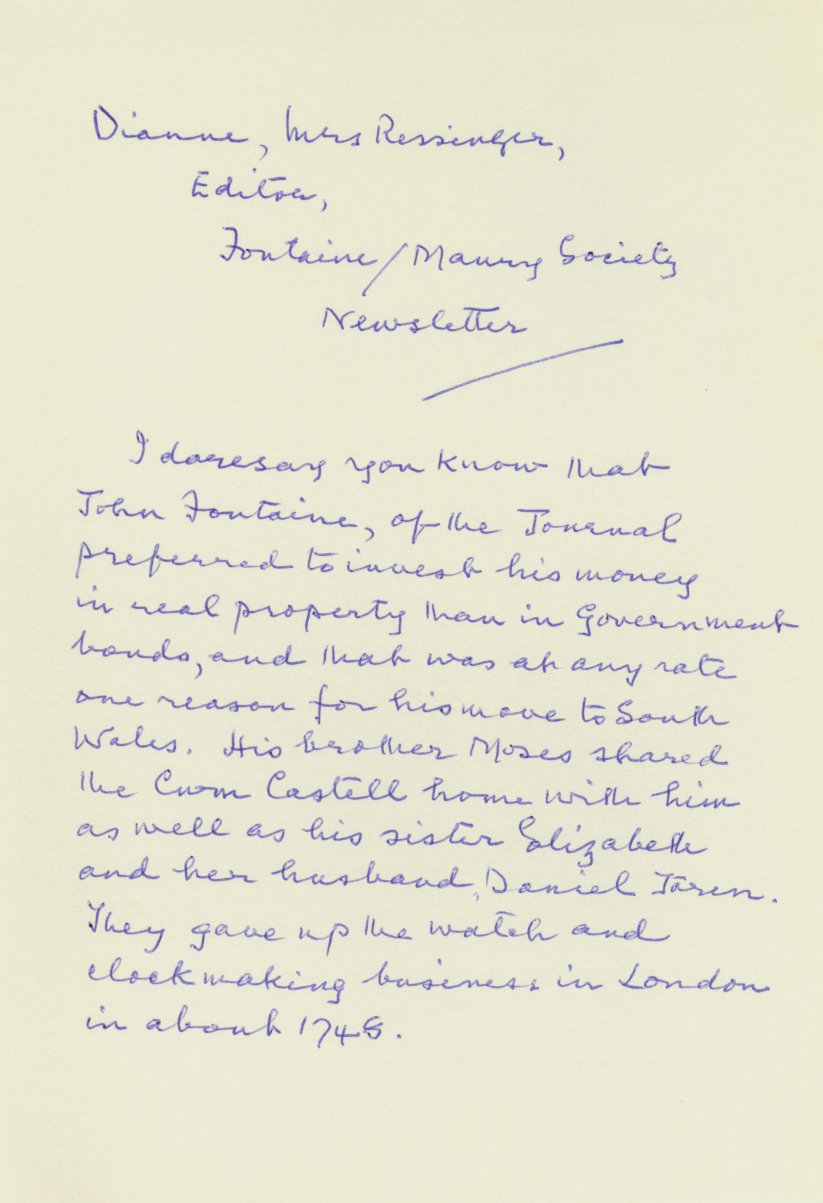 Dianne, Mrs Ressinger,
Editor,
Fontaine/Maury Society
Newsletter
I daresay you know that
John Fontaine, of the Journal
preferred to invest his money
in real property than in Government
bonds, and that was at any rate
one reason for his move to South
Wales. His brother Moses shared
the Cwm Castell home with him
as well as his sister Elizabeth
and her husband, Daniel
They gave up the watch and
clockmaking business in London
in about 1748.